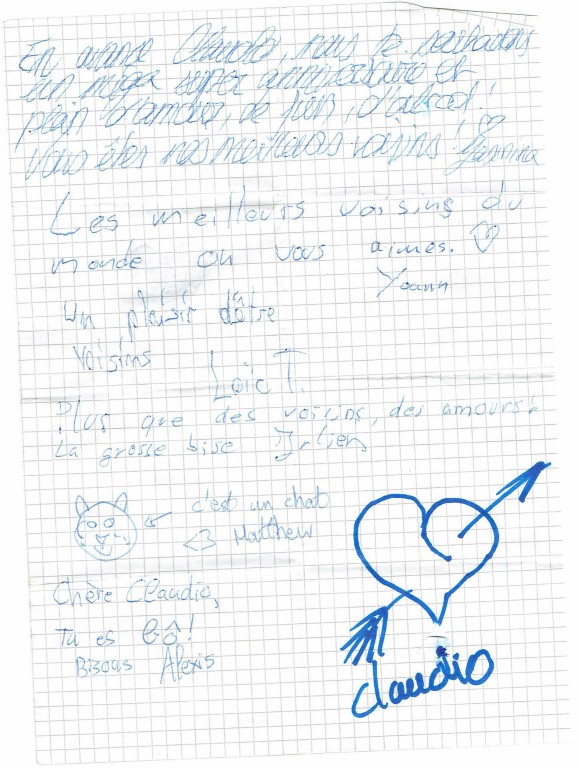 En avance Claudio, nous te souhaitons
un méga super anniversaire et
plein d'amour, de
Vous êtes nos meilleurs voisins ! ♡ Yasmina
Les meilleurs voising du
monde on vous aimes. ♡
Yoann
Un plaisir d'être
voisins
Loïc T.
Plus que des voisins, des amours!
La grosse bise Julien
c'est un chat
<3 Matthew
Chère Claudio,
Tu es bô!
Bisous Alexis
Claudio